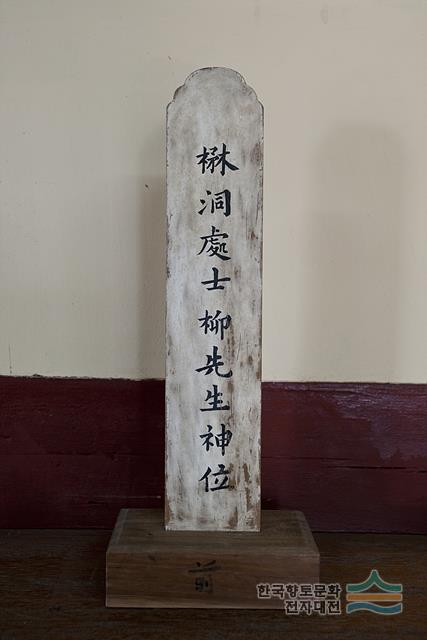 楙洞處士柳先生神位
前
한국향토문화
전자대전